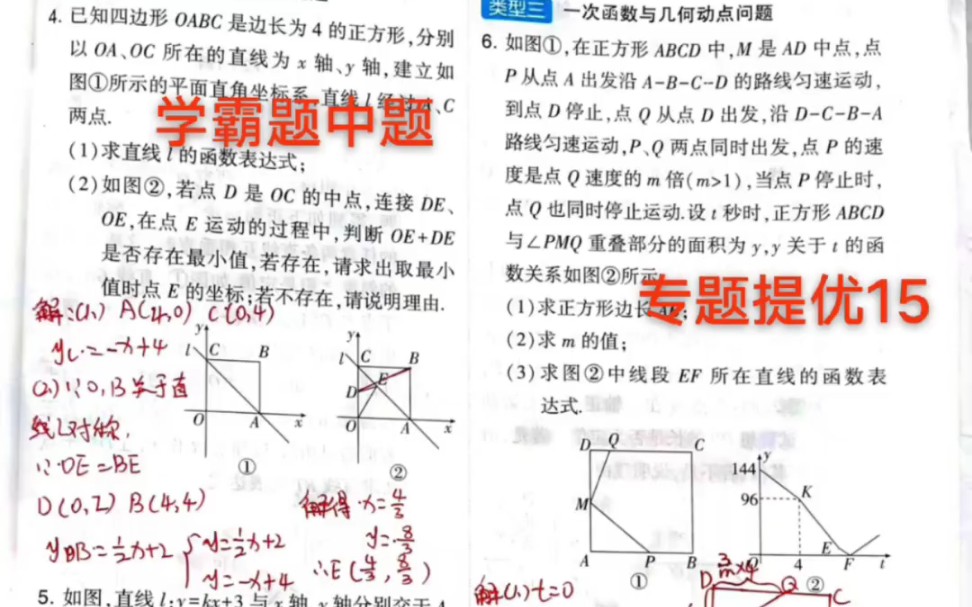 4. 已知四边形 OABC 是边长为 4 的正方形,分别
以 OA、OC 所在的直线为 x 轴、y 轴,建立如
图①所示的平面直角坐标系.直线 l 经过 A、C
两点.
学霸题中题
(1)求直线 l 的函数表达式;
(2)如图②,若点 D 是 OC 的中点,连接 DE、
OE,在点 E 运动的过程中,判断 OE+DE
是否存在最小值,若存在,请求出取最小
值时点 E 的坐标;若不存在,请说明理由.
解:(1) A(4,0) C(0,4)
y = -x+4
(2)∵O,B关于直
线L对称,
∴OE=BE
D(0,2) B(4,4)
yDB=½x+2
y=½x+2
y=-x+4
解得 x=4/3
y=8/3
∴E(4/3, 8/3)
y
l C B
O A x
①
y
l C B
D E
O A x
②
5. 如图,直线 l:y=kx+3 与 x 轴、y 轴分别交于 A
类型三 一次函数与几何动点问题
6. 如图①,在正方形 ABCD 中,M 是 AD 中点,点
P 从点 A 出发沿 A-B-C-D 的路线匀速运动,
到点 D 停止,点 Q 从点 D 出发,沿 D-C-B-A
路线匀速运动,P、Q 两点同时出发,点 P 的速
度是点 Q 速度的 m 倍(m>1),当点 P 停止时,
点 Q 也同时停止运动.设 t 秒时,正方形 ABCD
与∠PMQ 重叠部分的面积为 y,y 关于 t 的函
数关系如图②所示
专题提优15
(1)求正方形边长
(2)求 m 的值;
(3)求图②中线段 EF 所在直线的函数表
达式.
D Q C
M
A P B
①
y
144
96
K
E
4 F t
②
解(1) t=0
D Q C